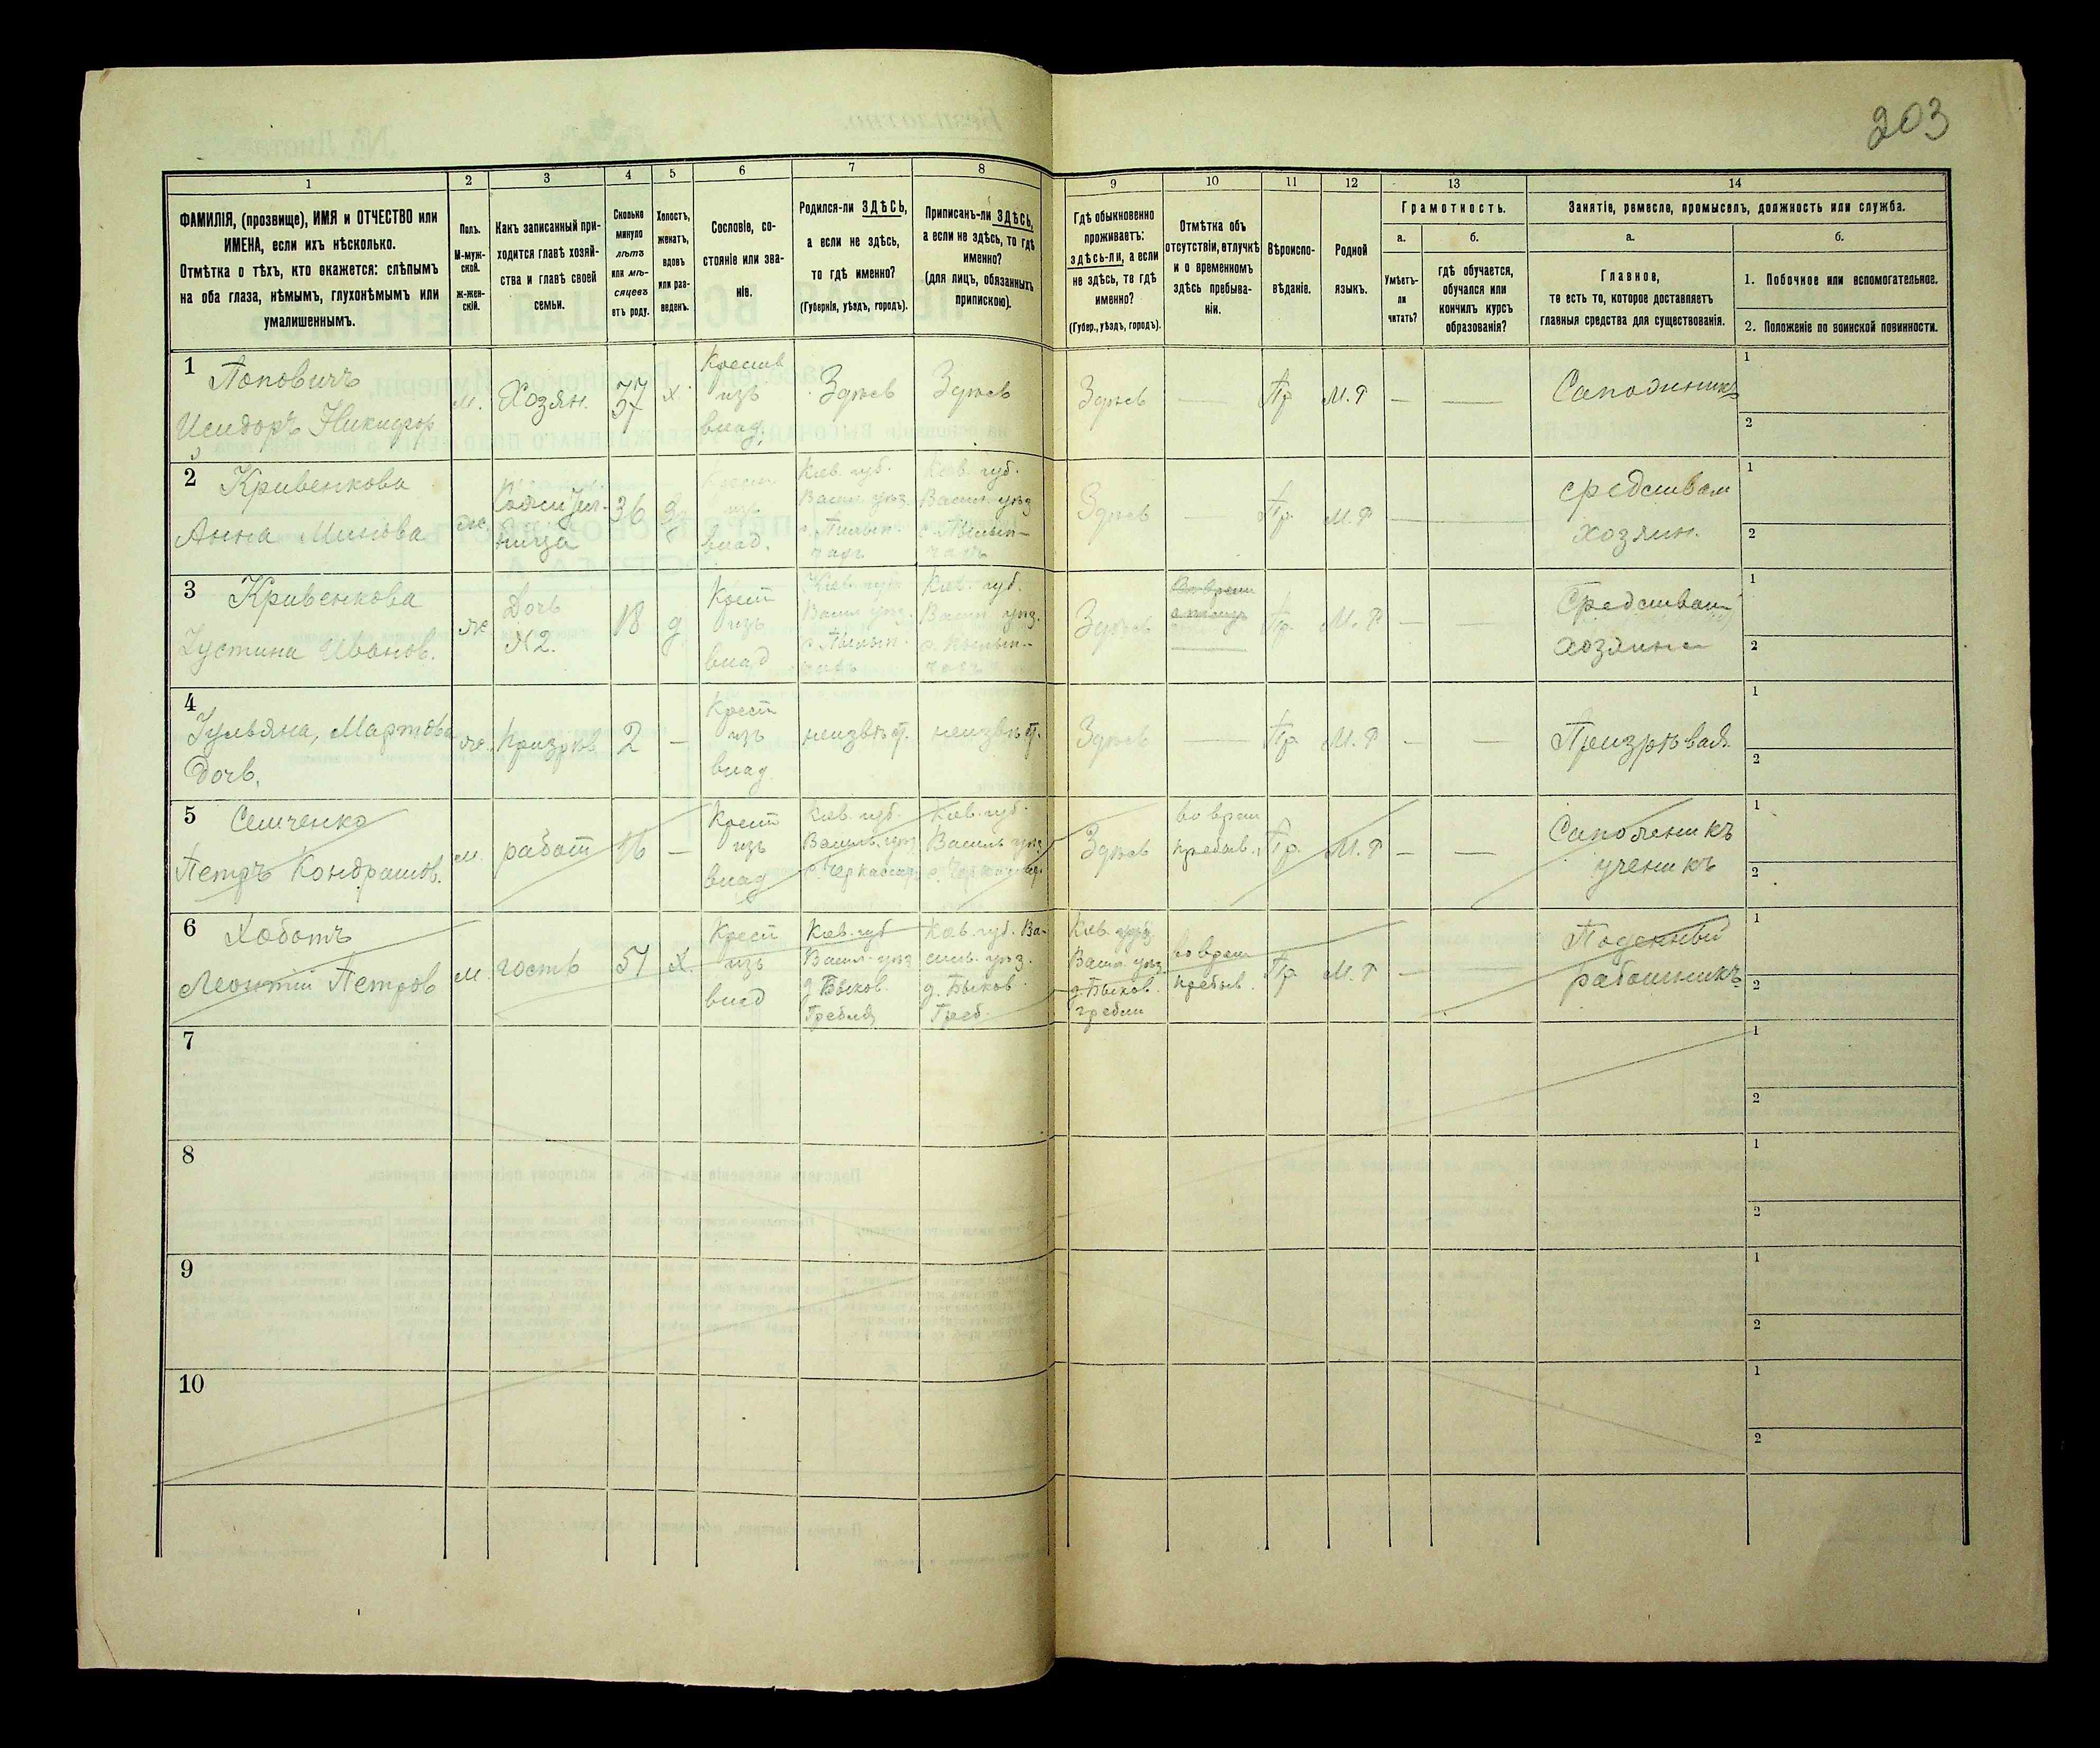 203
1
2
3
4
5
6
7
8
9
10
11
12
13
14
ФАМИЛІЯ, (прозвище), ИМЯ и ОТЧЕСТВО или
ИМЕНА, если ихъ нѣсколько.
Отмѣтка о тѣхъ, кто окажется: слѣпымъ
на оба глаза, нѣмымъ, глухонѣмымъ или
умалишеннымъ.
Полъ.
М-муж-
ской.
ж-жен-
скій.
Какъ записанный при-
ходится главѣ хозяй-
ства и главѣ своей
семьи.
Сколько
минуло
лѣтъ
или мѣ-
сяцевъ
отъ роду.
Холостъ,
женатъ,
вдовъ
или раз-
веденъ.
Сословіе, со-
стояніе или зва-
ніе.
Родился-ли ЗДѢСЬ,
а если не здѣсь,
то гдѣ именно?
(Губернія, уѣздъ, городъ).
Приписанъ-ли ЗДѢСЬ,
а если не здѣсь, то гдѣ
именно?
(для лицъ, обязанныхъ
припискою).
Гдѣ обыкновенно
проживаетъ:
здѣсь-ли, а если
не здѣсь, то гдѣ
именно?
(Губер., уѣздъ, городъ).
Отмѣтка объ
отсутствіи, отлучкѣ
и о временномъ
здѣсь пребыва-
ніи.
Вѣроиспо-
вѣданіе.
Родной
языкъ.
Грамотность.
а.
Умѣетъ-
ли
читать?
б.
гдѣ обучается,
обучался или
кончилъ курсъ
образованія?
Занятіе, ремесло, промыселъ, должность или служба.
а.
Главное,
то есть то, которое доставляетъ
главныя средства для существованія.
б.
1. Побочное или вспомогательное.
2. Положеніе по воинской повинности.
1
Поповичъ
Исидоръ Никифор
м.
Хозян.
57
х.
из
влад.
Здѣсь
Здѣсь
Здѣсь
—
Пр.
М.Р
—
—
Сапожникъ
1
2
2
Кривенкова
Анна
ж.
36
изъ
влад.
Кіев. губ.
Васил. уѣз.
Кіев. губ.
Васил. уѣз
Здѣсь
—
Пр.
М.Р
—
—
средствам
хозяин.
1
2
3
Кривенкова
Іустина Иванов.
ж.
Дочь
№2.
18
д.
Крест
изъ
влад
Кіев. губ.
Васил уѣз.
Кіев. губ.
Васил уѣз.
Здѣсь
Пр.
М.Р
—
—
Средствам
хозяина
1
2
4
Іульяна, Мартова
дочь.
ж.
2
—
Крест
изъ
влад.
неизвѣст.
неизвѣст.
Здѣсь
—
Пр.
М.Р
—
—
1
2
5
Семченко
Петръ Кондратов.
м.
работ
16
—
Крест
изъ
влад
Кіев. губ.
Васильк. уѣз
Кіев. губ.
Василь уѣз
Здѣсь
во врем
пребыв.
Пр.
М.Р
—
—
Сапожникъ
ученикъ
1
2
6
Хоботъ
Леонтій Петров
м.
гость
51
х.
Крест
изъ
влад
Кіев. губ
Васил. уѣз
д. Быков.
Гребля
Кіев. губ. Ва-
силь. уѣз.
д. Быков.
Греб.
Кіев. губ.
Васил. уѣз.
д. Быков.
гребли
во врем
пребыв.
Пр.
М.Р
—
—
Поденный
работникъ
1
2
7
1
2
8
1
2
9
1
2
10
1
2